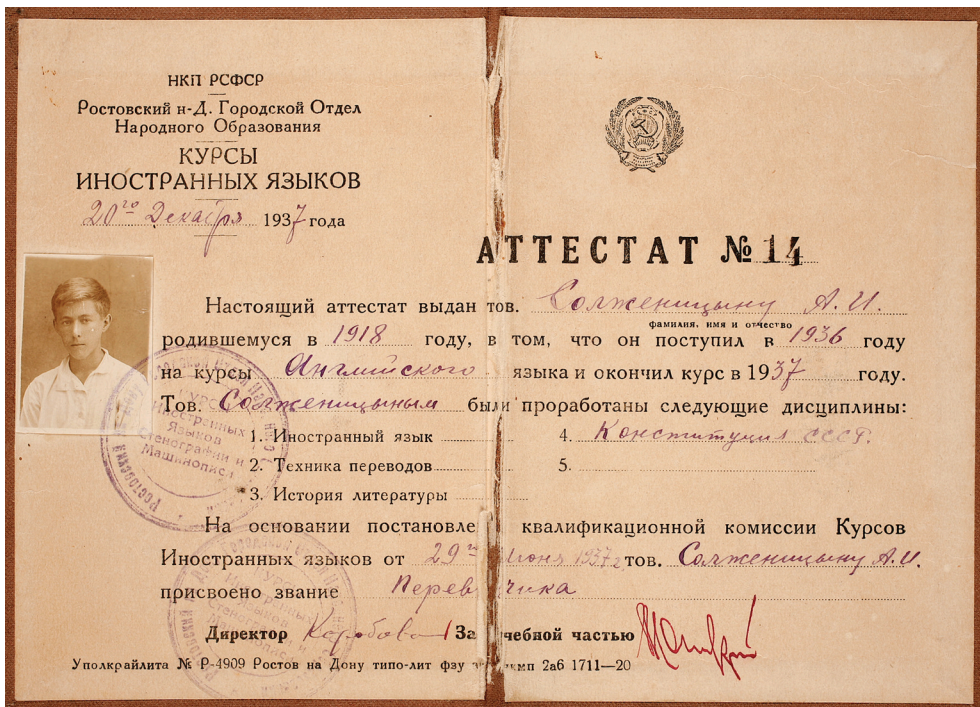 НКП РСФСР
Ростовский н-Д. Городской Отдел
Народного Образования
КУРСЫ
ИНОСТРАННЫХ ЯЗЫКОВ
20го Декабря 1937 года
АТТЕСТАТ № 14
Настоящий аттестат выдан тов. Солженицыну А. И.
фамилия, имя и отчество
родившемуся в 1918 году, в том, что он поступил в 1936 году
на курсы Английского языка и окончил курс в 1937 году.
Тов. Солженицыным были проработаны следующие дисциплины:
1. Иностранный язык
4. Конституция СССР.
2. Техника переводов
5.
3. История литературы
На основании постановле квалификационной комиссии Курсов
Иностранных языков от 29го Июня 1937г тов. Солженицыну А.И.
присвоено звание Перев чика
Директор За чебной частью
Уполкрайлита № Р-4909 Ростов на Дону типо-лит фзу 2а6 1711—20
Курсы
Иностранных
Языков
Стенографии и
Машинописи